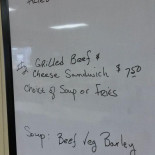 Grilled Beef &
Cheese Sandwich $7.50
Choice of Soup or Fries
Soup: Beef Veg Barley